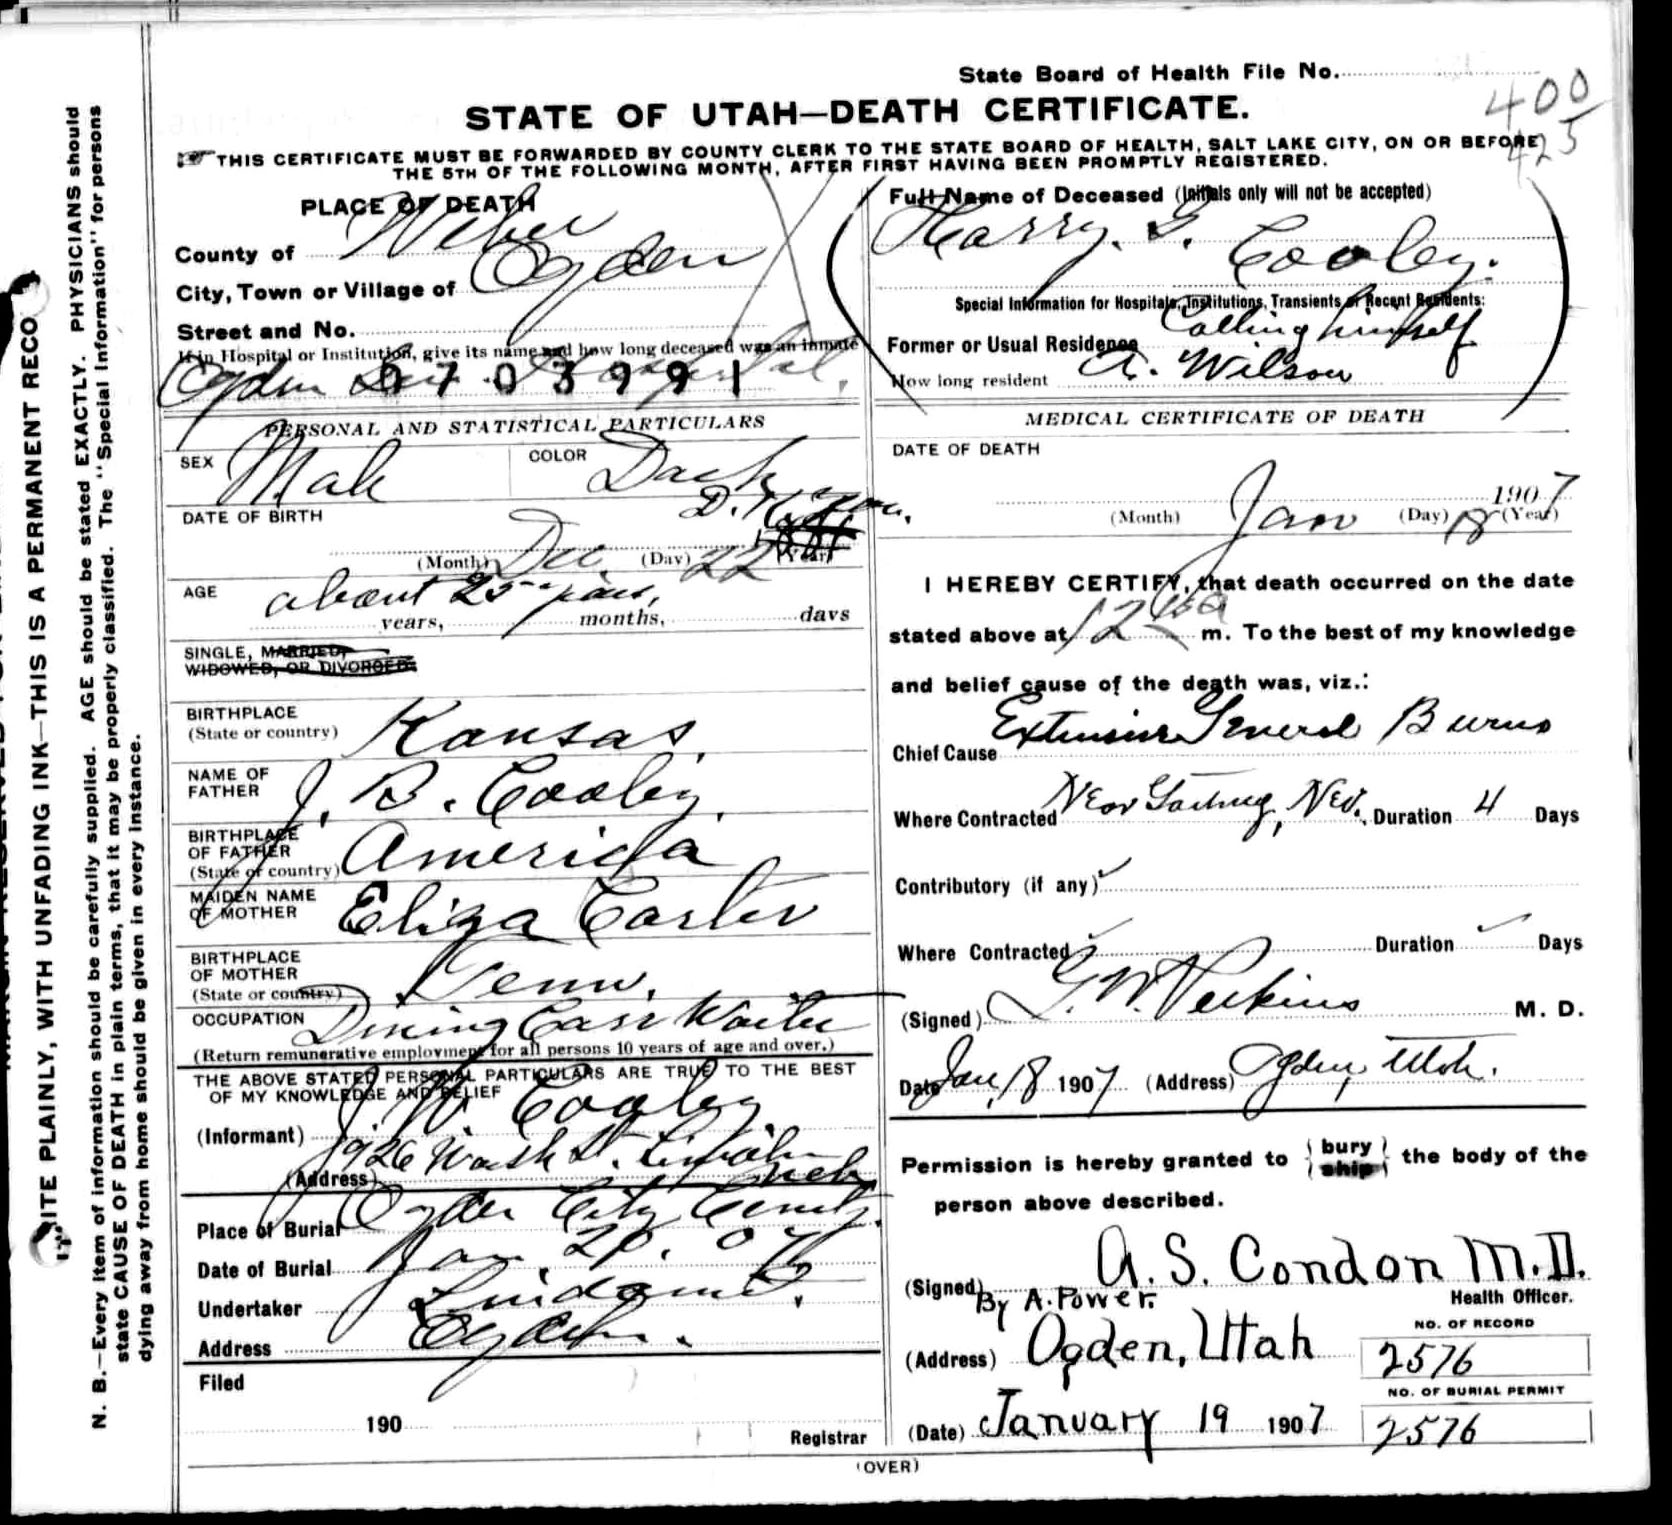 State Board of Health File No.
400
425
STATE OF UTAH—DEATH CERTIFICATE.
THIS CERTIFICATE MUST BE FORWARDED BY COUNTY CLERK TO THE STATE BOARD OF HEALTH, SALT LAKE CITY, ON OR BEFORE
THE 5TH OF THE FOLLOWING MONTH, AFTER FIRST HAVING BEEN PROMPTLY REGISTERED.
PLACE OF DEATH
County of Weber
City, Town or Village of Ogden
Street and No.
If in Hospital or Institution, give its name and how long deceased was an inmate
Ogden Hospital.
0703991
PERSONAL AND STATISTICAL PARTICULARS
SEX Male COLOR Dark
DATE OF BIRTH D. Know.
(Month) Dec. (Day) 22 (Year)
AGE about 25 years,
years, months, days
SINGLE, MARRIED,
WIDOWED, OR DIVORCED.
BIRTHPLACE
(State or country) Kansas.
NAME OF
FATHER J. B. Cooley.
BIRTHPLACE
OF FATHER
(State or country) America
MAIDEN NAME
OF MOTHER Eliza Carter
BIRTHPLACE
OF MOTHER
(State or country) Tenn.
OCCUPATION Dining Carr Waiter
(Return remunerative employment for all persons 10 years of age and over.)
THE ABOVE STATED PERSONAL PARTICULARS ARE TRUE TO THE BEST
OF MY KNOWLEDGE AND BELIEF
(Informant) J. W. Cooley
(Address) 1926 Wash St. Lincoln
Neb
Place of Burial Ogden City Cemty.
Date of Burial Jan. 20. 07
Undertaker
Address Ogden.
Filed
190
Registrar
Full Name of Deceased (Initials only will not be accepted)
Harry. G. Cooley.
Special Information for Hospitals, Institutions, Transients or Recent Residents:
Calling himself
Former or Usual Residence
A. Wilson
How long resident
MEDICAL CERTIFICATE OF DEATH
DATE OF DEATH
1907
(Month) Jan (Day) 18 (Year)
I HEREBY CERTIFY, that death occurred on the date
stated above at 12 m. To the best of my knowledge
and belief cause of the death was, viz.:
Chief Cause Extensive General Burns
Where Contracted Near Nev. Duration 4 Days
Contributory (if any)
Where Contracted Duration Days
(Signed) G. W. Perkins M. D.
Date Jan, 18 1907 (Address) Ogden, Utah.
Permission is hereby granted to { bury ship } the body of the
person above described.
(Signed) A. S. Condon M.D.
By A. Power. Health Officer.
(Address) Ogden, Utah
NO. OF RECORD
2576
NO. OF BURIAL PERMIT
2576
(Date) January 19 1907
(OVER)
N. B.—Every item of information should be carefully supplied. AGE should be stated EXACTLY. PHYSICIANS should
state CAUSE OF DEATH in plain terms, that it may be properly classified. The "Special Information" for persons
dying away from home should be given in every instance.
ITE PLAINLY, WITH UNFADING INK—THIS IS A PERMANENT RECO